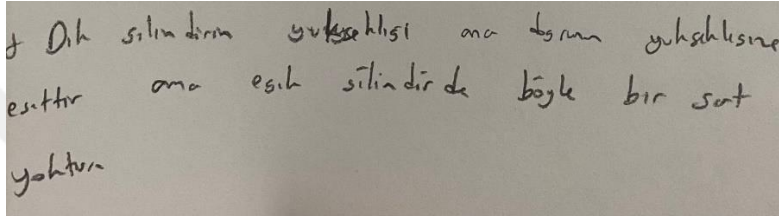 + Dik silindirin yuksekligi ana dogrunun yuksekligine
esittir ama egik silindirde böyle bir sart
yoktur